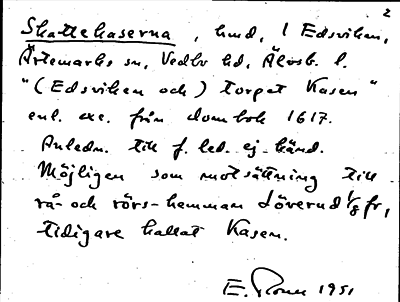 2
Skattekaserna, hmd, i Edsviken,
Ärtemarks sn, Vedbo hd, Älvsb. l.
"(Edsviken och) torpet Kasen"
enl. exc. från dombok 1617.
Anledn. till f. led. ej känd.
Möjligen som motsättning till
rå- och rörs-hemman Lövernd 1/8 fr,
tidigare kallat Kasen.
E. 1951